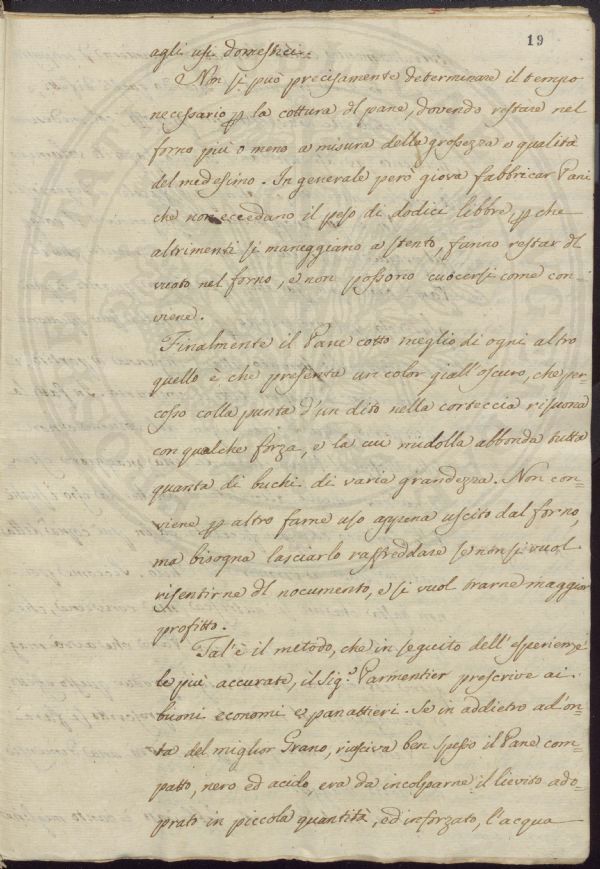 19
agli usi domestici.
Non si può precisamente determinare il tempo
necessario ꝑ la cottura dl pane, dovendo restare nel
forno più o meno a misura della grossezza e qualità
del medesimo. In generale però giova fabbricar Pani
che non eccedano il peso di dodici libbre, ꝑ che
altrimenti si maneggiano a stento, fanno restar dl
vuoto nel forno, e non possono cuocersi come con-
viene.
Finalmente il Pane cotto meglio di ogni altro
quello è che presenta un color giall'oscuro, che per-
cosso colla punta d'un dito nella corteccia risuona
con qualche forza, e la cui midolla abbonda tutta
quanta di buchi di varia grandezza. Non con-
viene ꝑ altro farne uso appena uscito dal forno,
ma bisogna lasciarlo raffreddare se non si vuol
risentirne dl nocumento, e si vuol trarne maggior
profitto.
Tal'è il metodo, che in seguito dell'esperienze
le più accurate, il Sig.r Parmentier prescrive ai
buoni economi e panattieri. Se in addietro ad'on=
ta del miglior Grano, riusciva ben spesso il Pane com=
patto, nero ed acido, era da incolparne il lievito ado=
prato in piccola quantità, ed inforzato, l'acqua